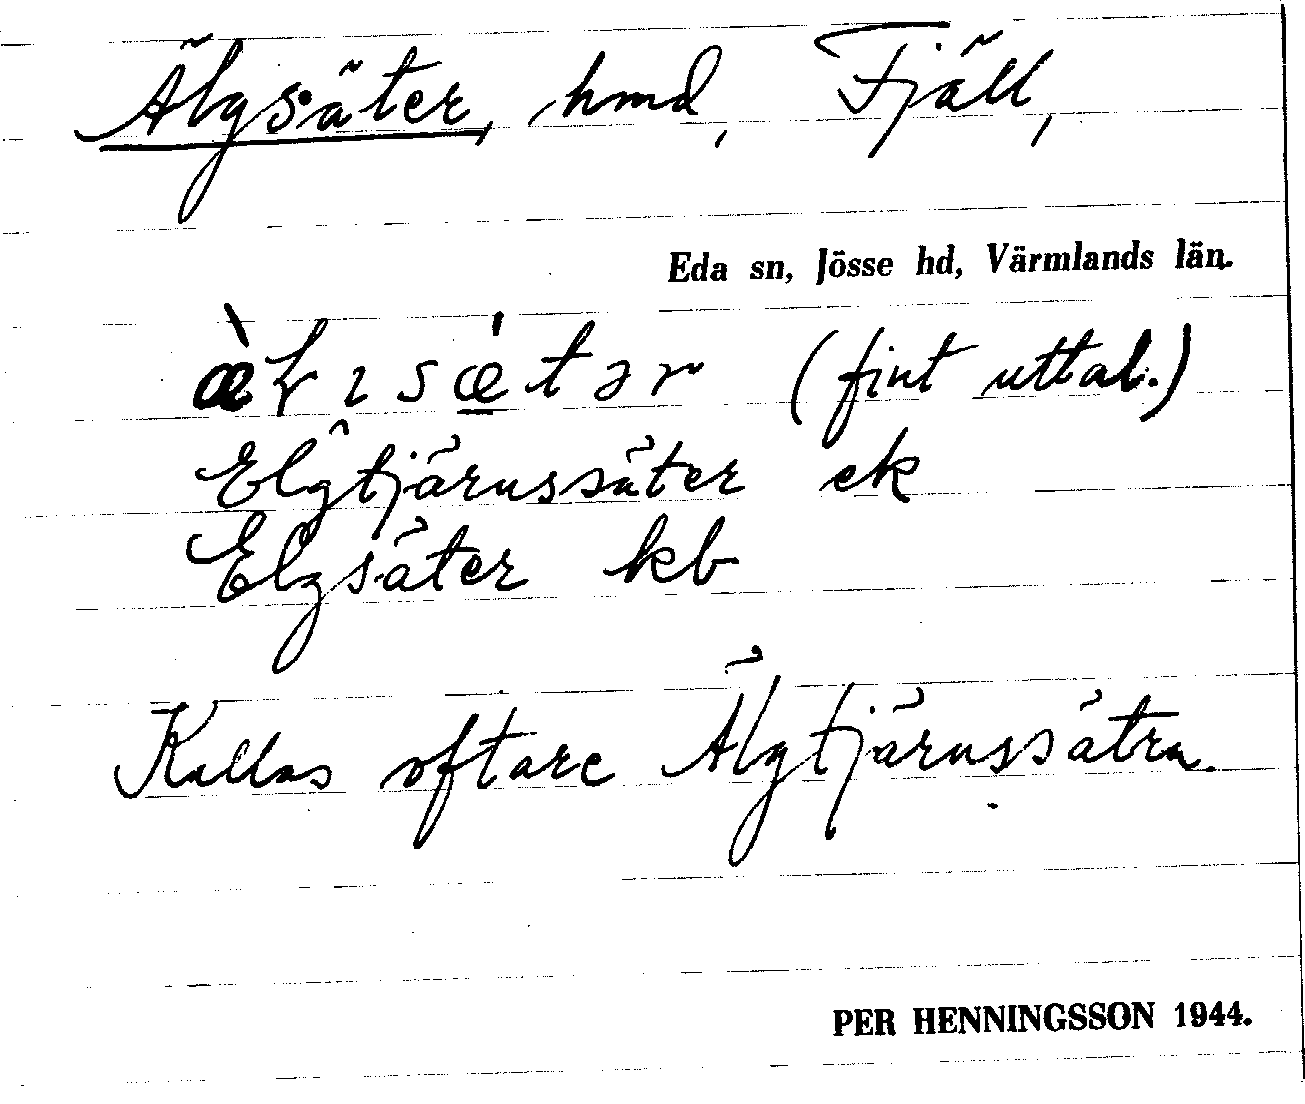 Älgsäter, hmd, Fjäll,
Eda sn, Jösse hd, Värmlands län.
(fint uttal.)
Elgtjärnssäter ek
Elgsäter kb
Kallas oftare Älgtjärnssätra.
PER HENNINGSSON 1944.